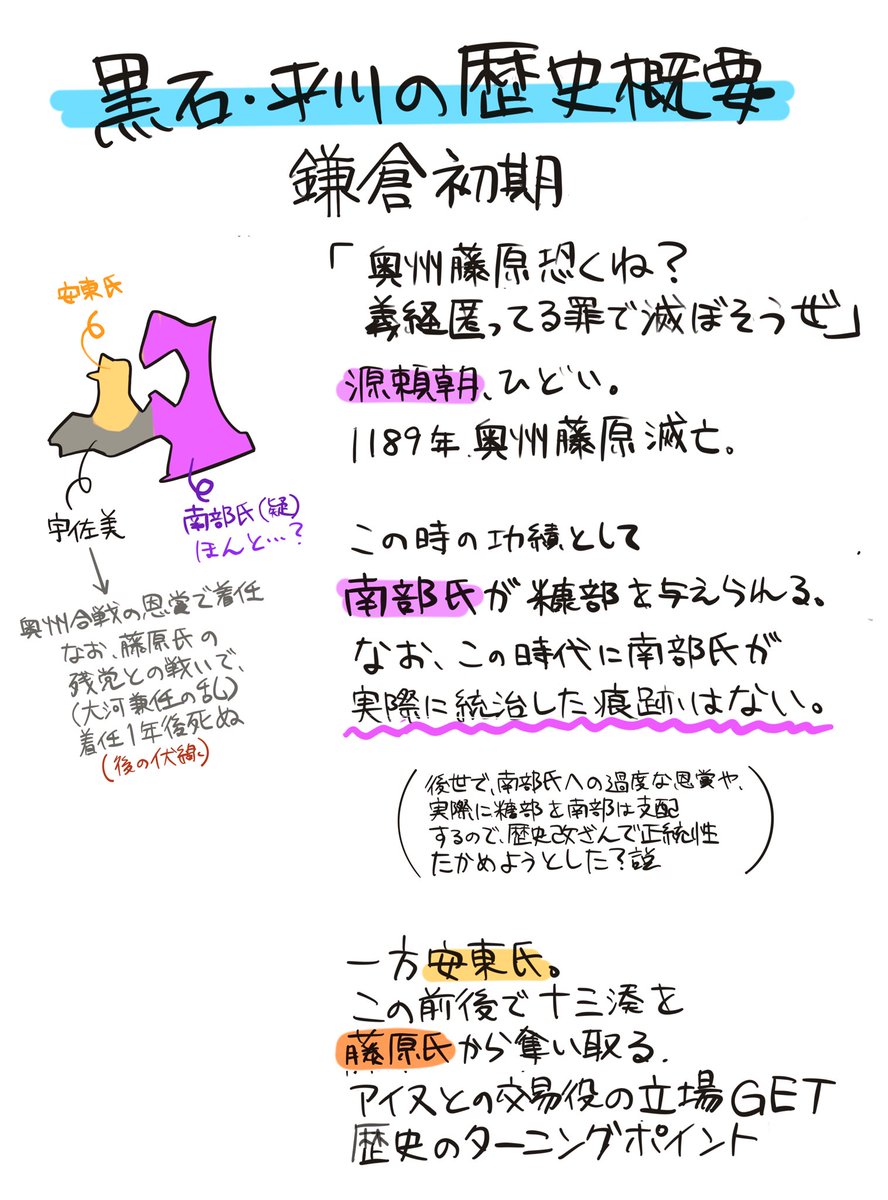 黒石・平川の歴史概要
鎌倉初期
「奥州藤原恐くね？
義経匿ってる罪で滅ぼそうぜ」
源頼朝、ひどい。
1189年、奥州藤原滅亡。
安東氏
宇佐美
南部氏(疑)
ほんと…？
奥州合戦の恩賞で着任
なお、藤原氏の
残党との戦いで、
(大河兼任の乱)
着任1年後死ぬ
(後の伏線)
この時の功績として
南部氏が糠部を与えられる。
なお、この時代に南部氏が
実際に統治した痕跡はない。
(後世で、南部氏への過度な恩賞や、
実際に糖部を南部は支配
するので、歴史改ざんで正統性
たかめようとした？説)
一方安東氏。
この前後で十三湊を
藤原氏から奪い取る.
アイヌとの交易役の立場GET
歴史のターニングポイント